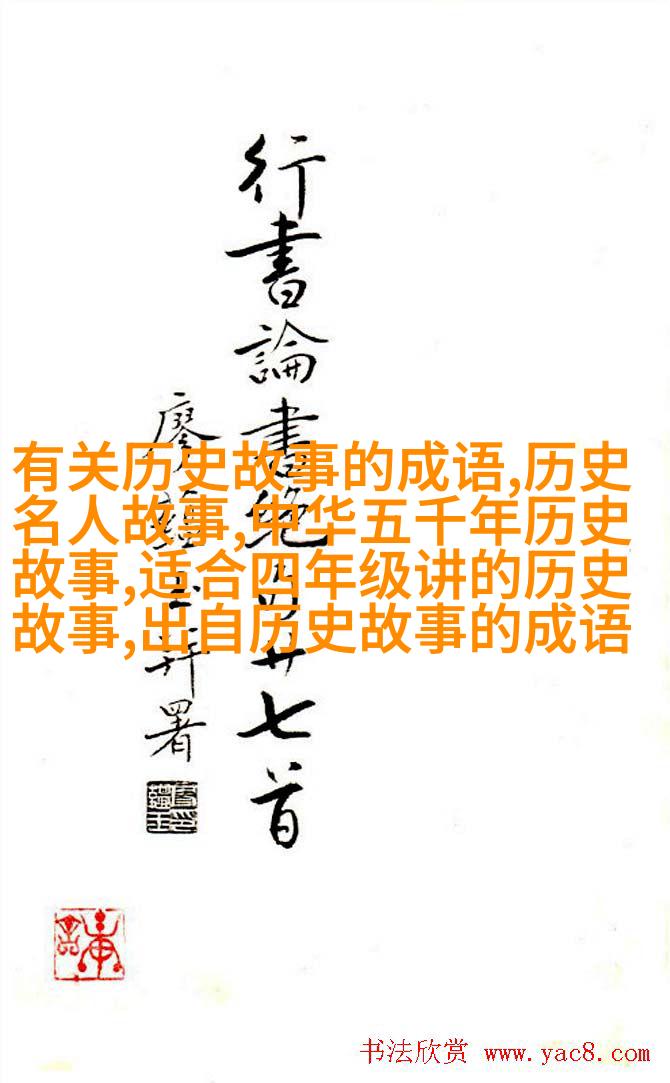 行書論書絶句廿七首
廖蘊玉并署
有关历史故事的成语,历史
名人故事,中华五千年历史
故事,适合四年级讲的历史
故事,出自历史故事的成语
书法欣赏 www.yac8.com